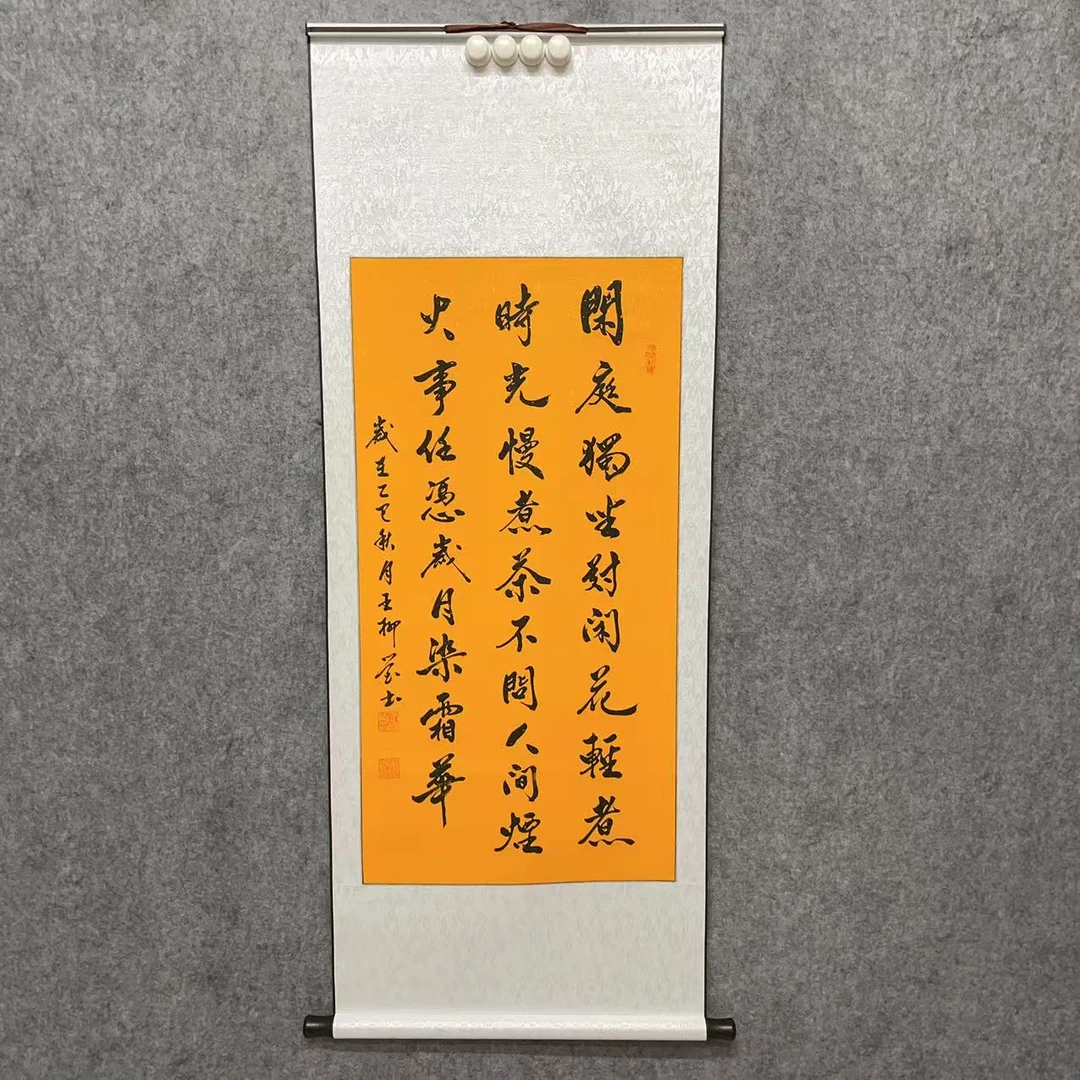 閑庭獨坐對闲花輕煮
時光慢煮茶不問人间煙
火事任憑歲月染霜華
歲在乙巳秋月王柳營书